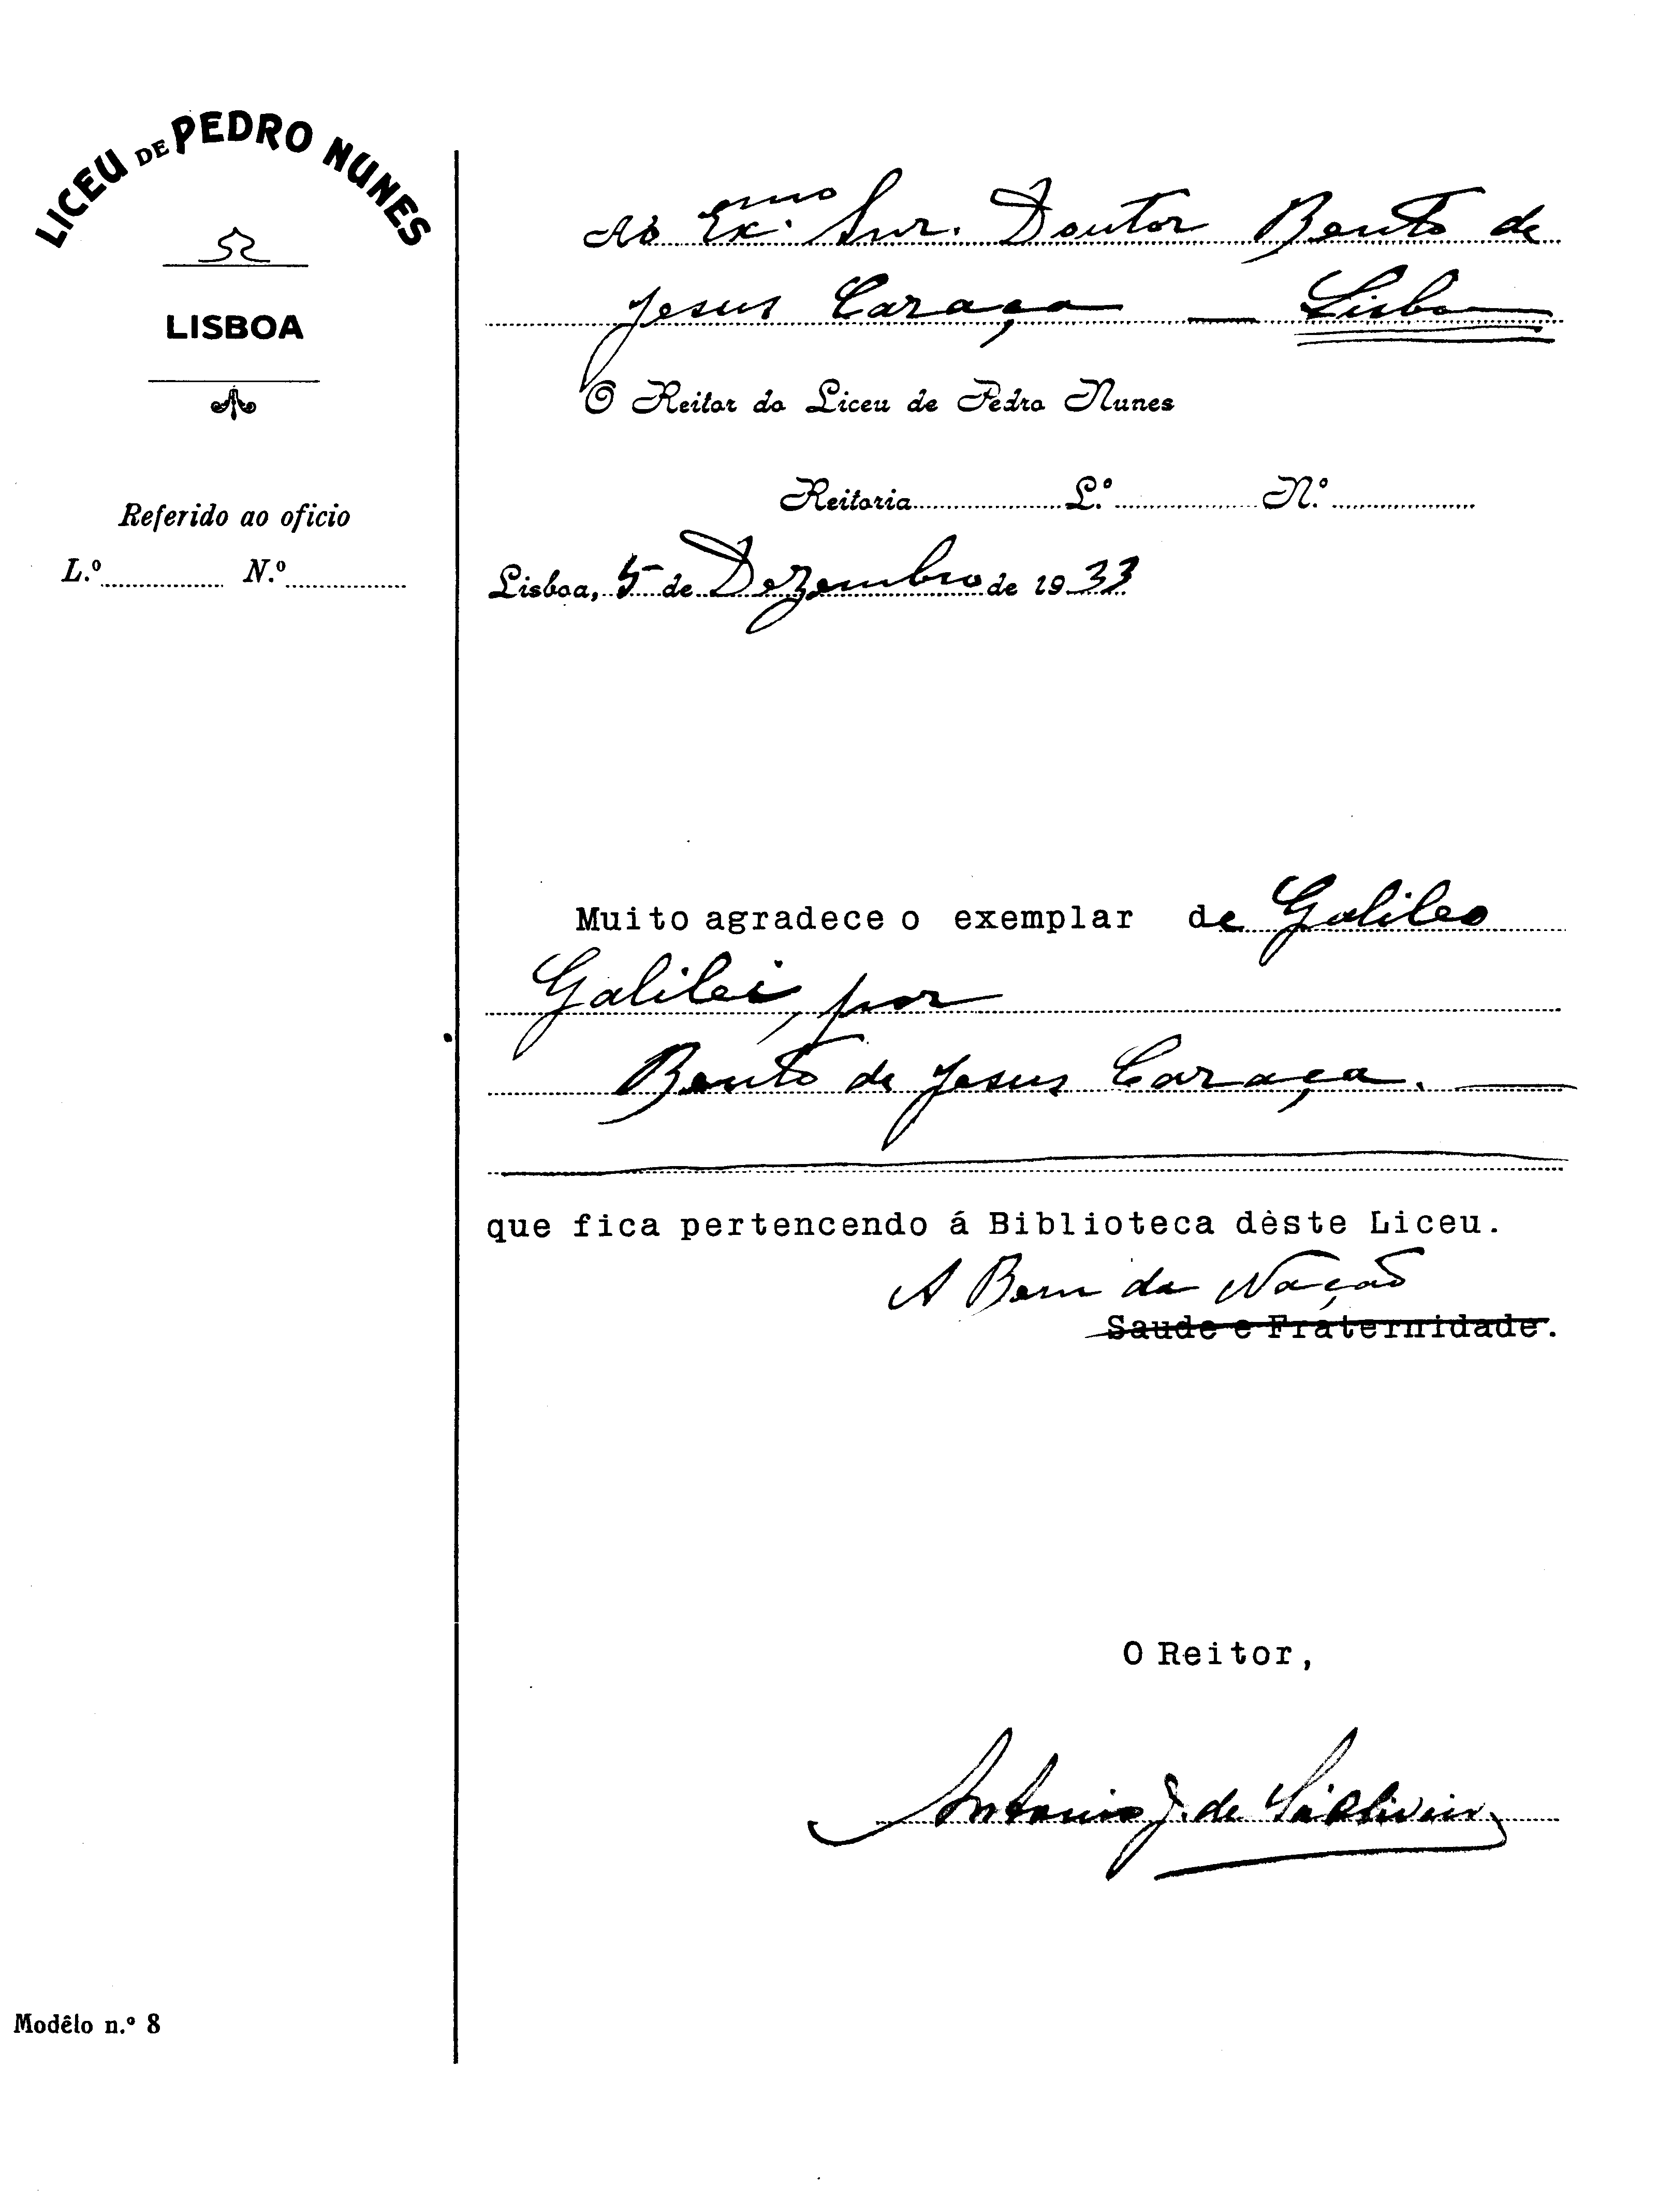 LICEU DE PEDRO NUNES
LISBOA
Referido ao oficio
L.º N.º
Ao Ex.mo Snr. Doutor Bento de
Jesus Caraça — Lisboa
O Reitor do Liceu de Pedro Nunes
Reitoria L.º N.º
Lisboa, 5 de Dezembro de 1933
Muito agradece o exemplar de Galileo
Galilei, por
Bento de Jesus Caraça.
que fica pertencendo á Biblioteca dèste Liceu.
A Bem da Nação
Saude e Fraternidade.
O Reitor,
Antonio J. de Sá Oliveira
Modêlo n.º 8